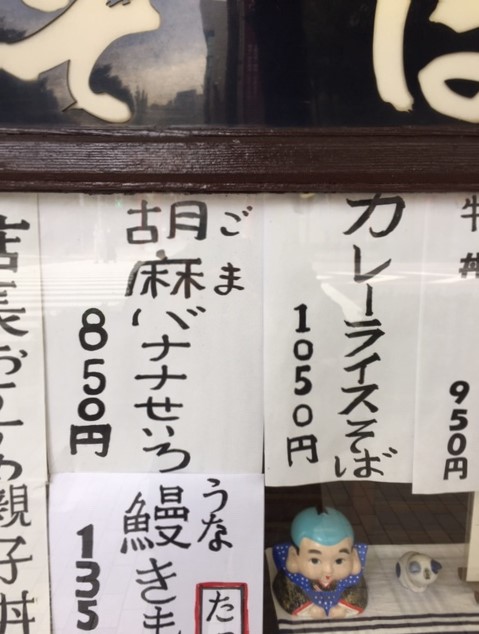 そば
牛丼
950円
カレーライスそば
1050円
ごま
胡麻バナナせいろ
850円
うな
鰻きも
た
135
店長おすすめ親子丼